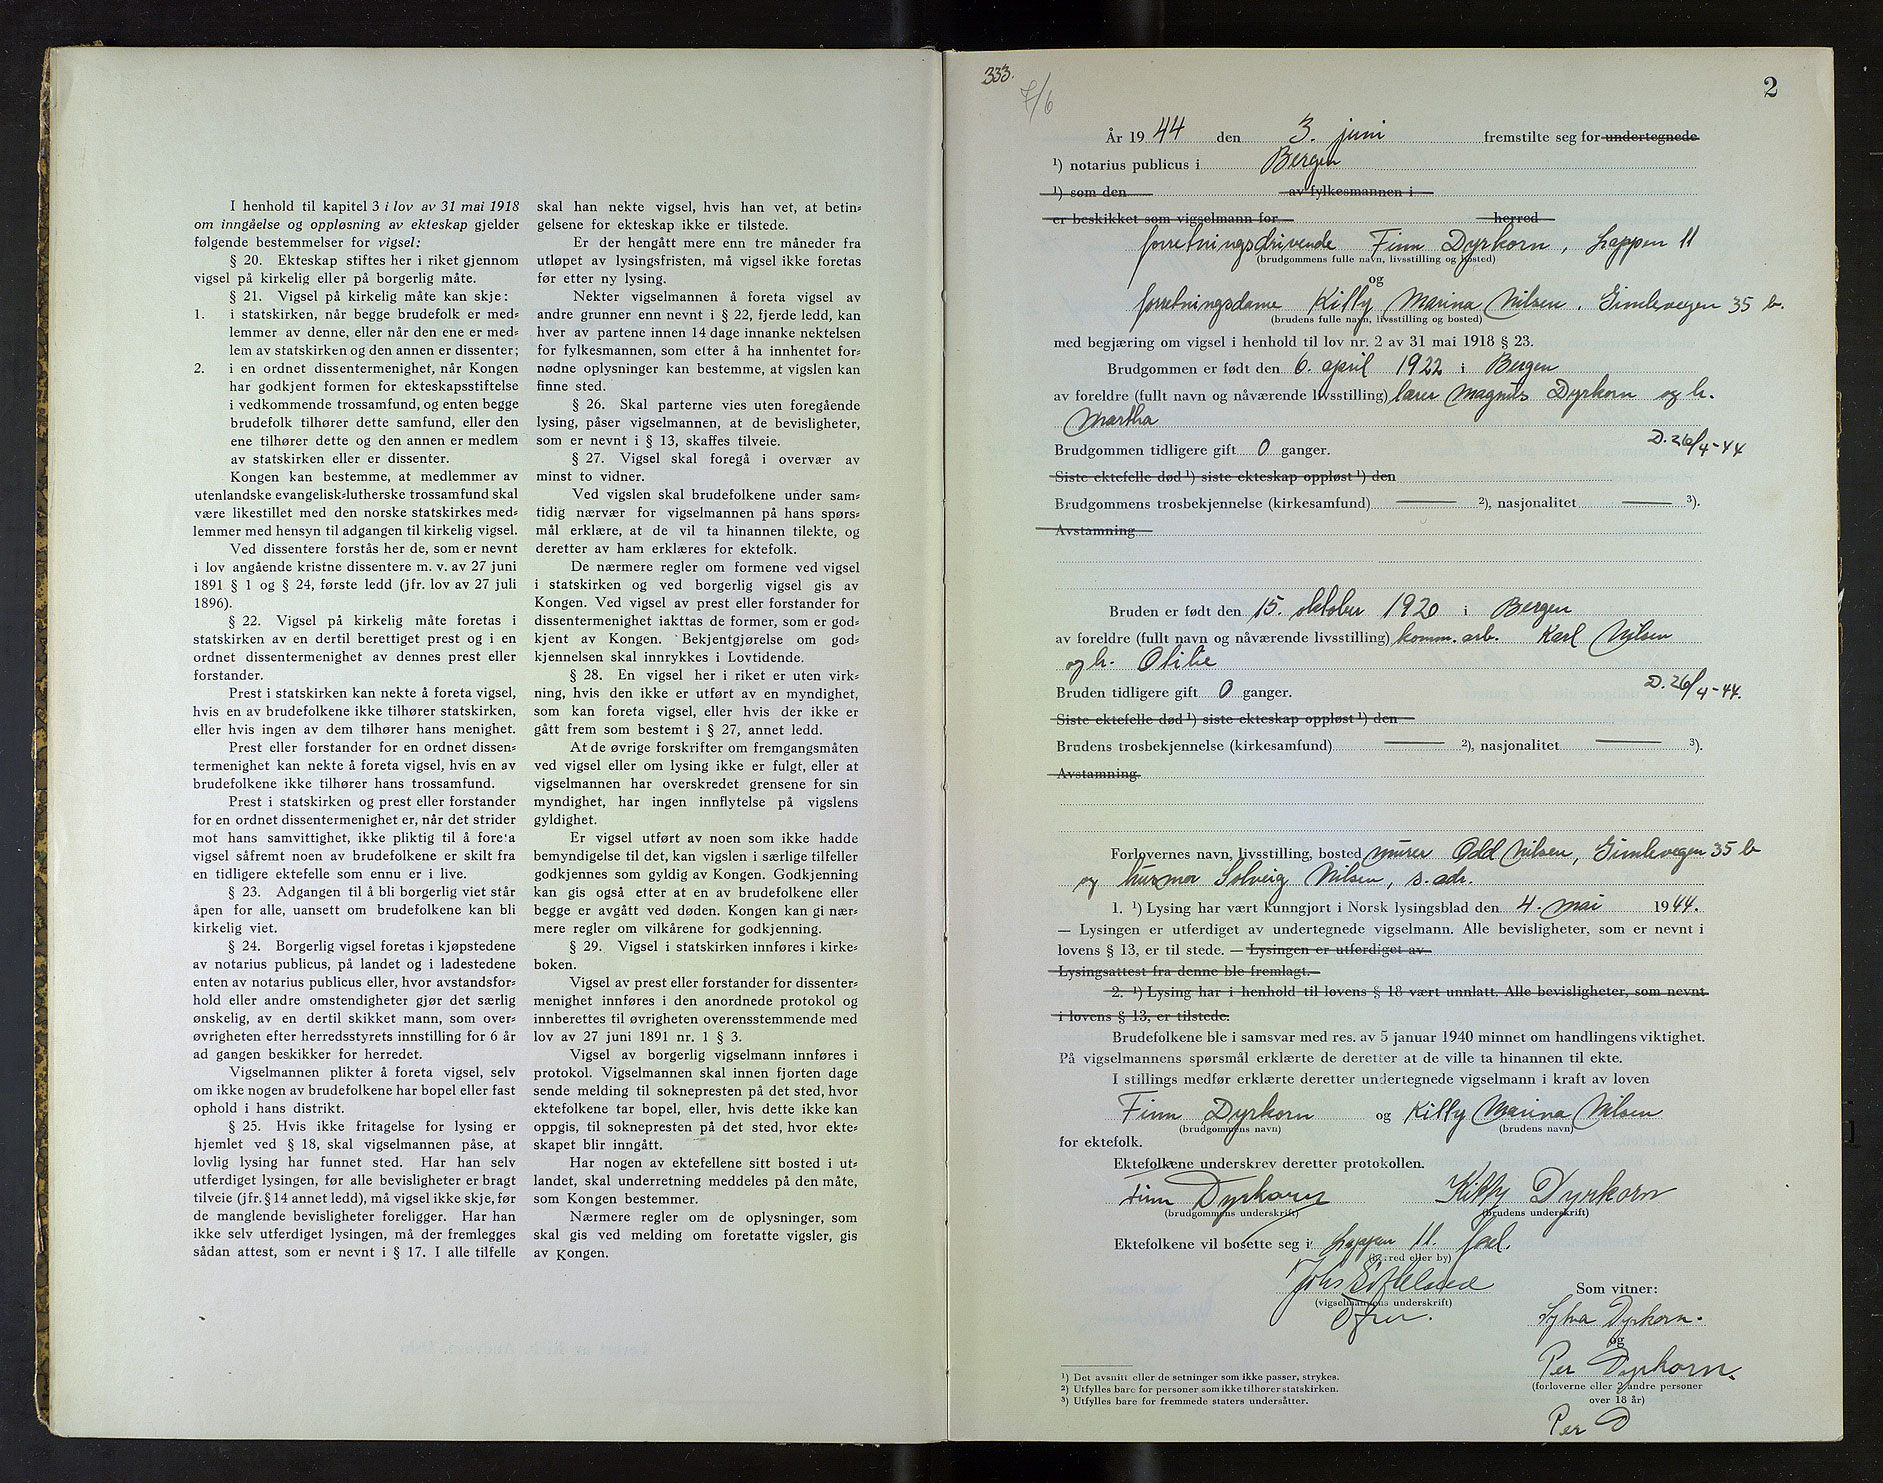 I henhold til kapitel 3 i lov av 31 mai 1918
om inngåelse og oppløsning av ekteskap gjelder
følgende bestemmelser for vigsel:
§ 20. Ekteskap stiftes her i riket gjennom
vigsel på kirkelig eller på borgerlig måte.
§ 21. Vigsel på kirkelig måte kan skje:
1. i statskirken, når begge brudefolk er med=
lemmer av denne, eller når den ene er med=
lem av statskirken og den annen er dissenter;
2. i en ordnet dissentermenighet, når Kongen
har godkjent formen for ekteskapsstiftelse
i vedkommende trossamfund, og enten begge
brudefolk tilhører dette samfund, eller den
ene tilhører dette og den annen er medlem
av statskirken eller er dissenter.
Kongen kan bestemme, at medlemmer av
utenlandske evangelisk=lutherske trossamfund skal
være likestillet med den norske statskirkes med=
lemmer med hensyn til adgangen til kirkelig vigsel.
Ved dissentere forstås her de, som er nevnt
i lov angående kristne dissentere m. v. av 27 juni
1891 § 1 og § 24, første ledd (jfr. lov av 27 juli
1896).
§ 22. Vigsel på kirkelig måte foretas i
statskirken av en dertil berettiget prest og i en
ordnet dissentermenighet av dennes prest eller
forstander.
Prest i statskirken kan nekte å foreta vigsel,
hvis en av brudefolkene ikke tilhører statskirken,
eller hvis ingen av dem tilhører hans menighet.
Prest eller forstander for en ordnet dissen=
termenighet kan nekte å foreta vigsel, hvis en av
brudefolkene ikke tilhører hans trossamfund.
Prest i statskirken og prest eller forstander
for en ordnet dissentermenighet er, når det strider
mot hans samvittighet, ikke pliktig til å fore'a
vigsel såfremt noen av brudefolkene er skilt fra
en tidligere ektefelle som ennu er i live.
§ 23. Adgangen til å bli borgerlig viet står
åpen for alle, uansett om brudefolkene kan bli
kirkelig viet.
§ 24. Borgerlig vigsel foretas i kjøpstedene
av notarius publicus, på landet og i ladestedene
enten av notarius publicus eller, hvor avstandsfor=
hold eller andre omstendigheter gjør det særlig
ønskelig, av en dertil skikket mann, som over=
øvrigheten efter herredsstyrets innstilling for 6 år
ad gangen beskikker for herredet.
Vigselmannen plikter å foreta vigsel, selv
om ikke nogen av brudefolkene har bopel eller fast
ophold i hans distrikt.
§ 25. Hvis ikke fritagelse for lysing er
hjemlet ved § 18, skal vigselmannen påse, at
lovlig lysing har funnet sted. Har han selv
utferdiget lysingen, før alle bevisligheter er bragt
tilveie (jfr. § 14 annet ledd), må vigsel ikke skje, før
de manglende bevisligheter foreligger. Har han
ikke selv utferdiget lysingen, må der fremlegges
sådan attest, som er nevnt i § 17. I alle tilfelle
skal han nekte vigsel, hvis han vet, at betin=
gelsene for ekteskap ikke er tilstede.
Er der hengått mere enn tre måneder fra
utløpet av lysingsfristen, må vigsel ikke foretas
før etter ny lysing.
Nekter vigselmannen å foreta vigsel av
andre grunner enn nevnt i § 22, fjerde ledd, kan
hver av partene innen 14 dage innanke nektelsen
for fylkesmannen, som etter å ha innhentet for=
nødne oplysninger kan bestemme, at vigslen kan
finne sted.
§ 26. Skal parterne vies uten foregående
lysing, påser vigselmannen, at de bevisligheter,
som er nevnt i § 13, skaffes tilveie.
§ 27. Vigsel skal foregå i overvær av
minst to vidner.
Ved vigslen skal brudefolkene under sam=
tidig nærvær for vigselmannen på hans spørs=
mål erklære, at de vil ta hinannen tilekte, og
deretter av ham erklæres for ektefolk.
De nærmere regler om formene ved vigsel
i statskirken og ved borgerlig vigsel gis av
Kongen. Ved vigsel av prest eller forstander for
dissentermenighet iakttas de former, som er god=
kjent av Kongen. Bekjentgjørelse om god=
kjennelsen skal innrykkes i Lovtidende.
§ 28. En vigsel her i riket er uten virk=
ning, hvis den ikke er utført av en myndighet,
som kan foreta vigsel, eller hvis der ikke er
gått frem som bestemt i § 27, annet ledd.
At de øvrige forskrifter om fremgangsmåten
ved vigsel eller om lysing ikke er fulgt, eller at
vigselmannen har overskredet grensene for sin
myndighet, har ingen innflytelse på vigslens
gyldighet.
Er vigsel utført av noen som ikke hadde
bemyndigelse til det, kan vigslen i særlige tilfeller
godkjennes som gyldig av Kongen. Godkjenning
kan gis også etter at en av brudefolkene eller
begge er avgått ved døden. Kongen kan gi nær=
mere regler om vilkårene for godkjenning.
§ 29. Vigsel i statskirken innføres i kirke=
boken.
Vigsel av prest eller forstander for dissenter=
menighet innføres i den anordnede protokol og
innberettes til øvrigheten overensstemmende med
lov av 27 juni 1891 nr. 1 § 3.
Vigsel av borgerlig vigselmann innføres i
protokol. Vigselmannen skal innen fjorten dage
sende melding til soknepresten på det sted, hvor
ektefolkene tar bopel, eller, hvis dette ikke kan
oppgis, til soknepresten på det sted, hvor ekte=
skapet blir inngått.
Har nogen av ektefellene sitt bosted i ut=
landet, skal underretning meddeles på den måte,
som Kongen bestemmer.
Nærmere regler om de oplysninger, som
skal gis ved melding om foretatte vigsler, gis
av Kongen.
333.
7/6
2
År 1944 den 3. juni fremstilte seg for undertegnede
¹) notarius publicus i Bergen
¹) som den av fylkesmannen i
er beskikket som vigselmann for herred
forretningsdrivende Finn Dyrkorn, Lappen 11
(brudgommens fulle navn, livsstilling og bosted)
og
forretningsdame Kitty Marina Nilsen. Gimlevegen 35 b.
(brudens fulle navn, livsstilling og bosted)
med begjæring om vigsel i henhold til lov nr. 2 av 31 mai 1918 § 23.
Brudgommen er født den 6. april 1922 i Bergen
av foreldre (fullt navn og nåværende livsstilling) lærer Magnus Dyrkorn og h.
Martha
Brudgommen tidligere gift 0 ganger. D. 26/4-44
Siste ektefelle død ¹) siste ekteskap oppløst ¹) den
Brudgommens trosbekjennelse (kirkesamfund) — ²), nasjonalitet — ³).
Avstamning
Bruden er født den 15. oktober 1920 i Bergen
av foreldre (fullt navn og nåværende livsstilling) komm. arb. Karl Nilsen
og h. Otilie
Bruden tidligere gift 0 ganger. D. 26/4-44.
Siste ektefelle død ¹) siste ekteskap oppløst ¹) den
Brudens trosbekjennelse (kirkesamfund) — ²), nasjonalitet — ³).
Avstamning
Forlovernes navn, livsstilling, bosted murer Odd Nilsen, Gimlevegen 35 b
og husmor Solveig Nilsen, s. adr.
1. ¹) Lysing har vært kunngjort i Norsk lysingsblad den 4. mai 1944.
— Lysingen er utferdiget av undertegnede vigselmann. Alle bevisligheter, som er nevnt i
lovens § 13, er til stede. — Lysingen er utferdiget av
Lysingsattest fra denne ble fremlagt.
2. ¹) Lysing har i henhold til lovens § 18 vært unnlatt. Alle bevisligheter, som nevnt
i lovens § 13, er tilstede.
Brudefolkene ble i samsvar med res. av 5 januar 1940 minnet om handlingens viktighet.
På vigselmannens spørsmål erklærte de deretter at de ville ta hinannen til ekte.
I stillings medfør erklærte deretter undertegnede vigselmann i kraft av loven
Finn Dyrkorn og Kitty Marina Nilsen
(brudgommens navn) (brudens navn)
for ektefolk.
Ektefolkene underskrev deretter protokollen.
Finn Dyrkorn Kitty Dyrkorn
(brudgommens underskrift) (brudens underskrift)
Ektefolkene vil bosette seg i Lappen 11.
(herred eller by)
(vigselmannens underskrift)
Som vitner:
Sylva Dyrkorn.
og
Per Dyrkorn.
(forloverne eller 2 andre personer
over 18 år)
Per D
¹) Det avsnitt eller de setninger som ikke passer, strykes.
²) Utfylles bare for personer som ikke tilhører statskirken.
³) Utfylles bare for fremmede staters undersåtter.